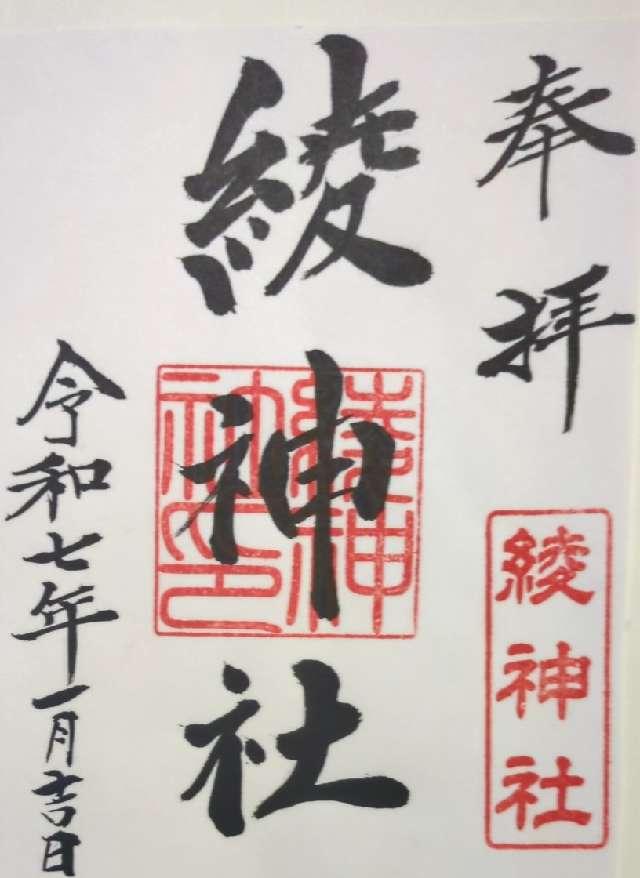 奉拝
綾神社
綾神社
綾神社印
令和七年一月吉日